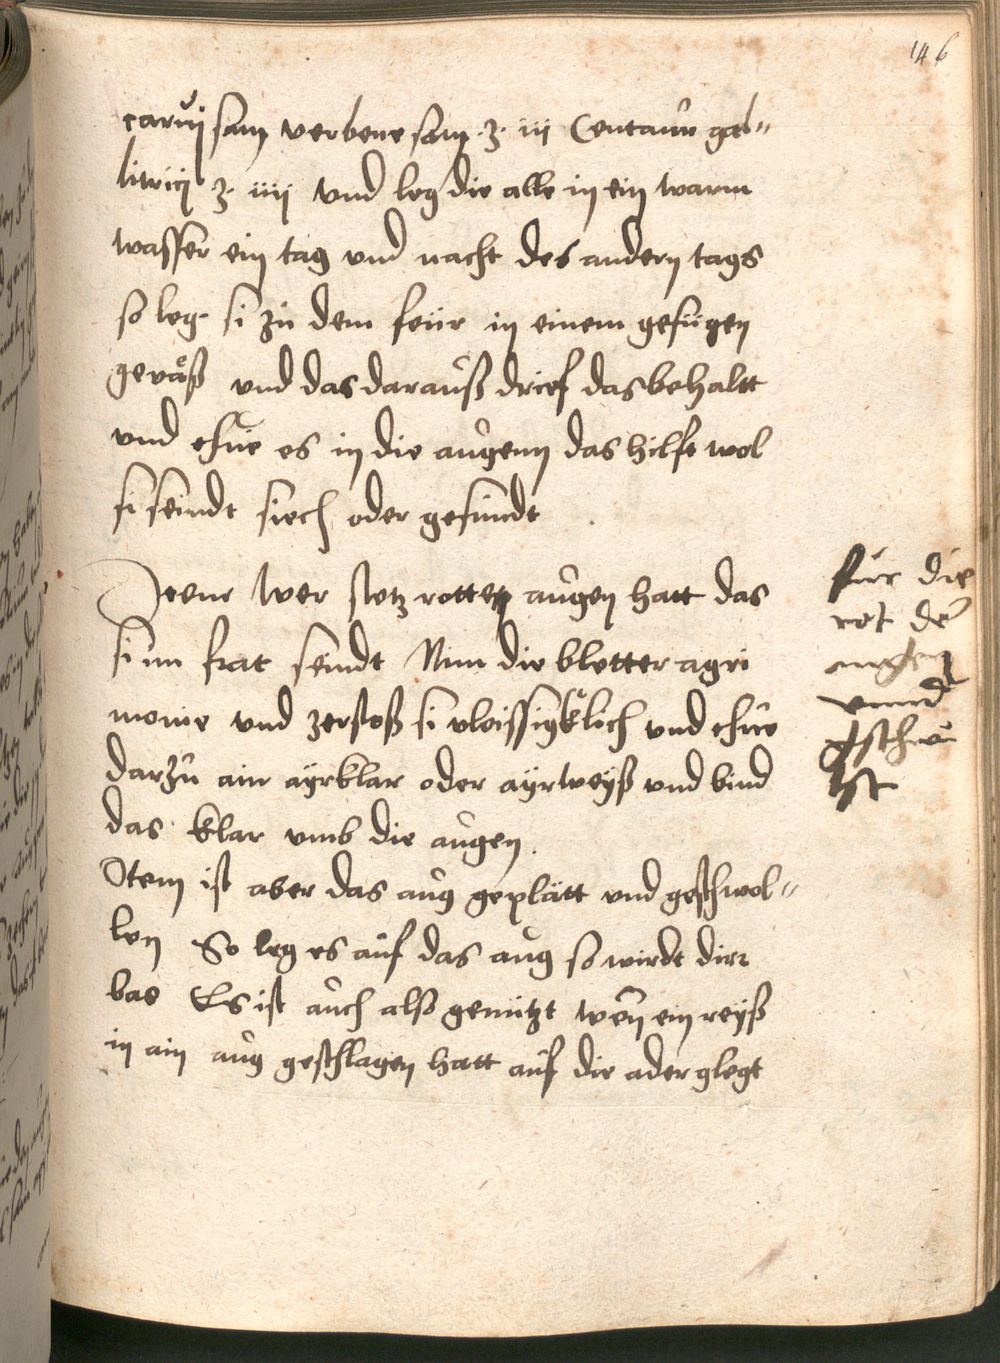 146
carvij sam verbene sam ʒ iij Centaur gal⸗
litricj ʒ iiij vnd leg die alle in ein warm
wasser ein tag vnd nacht des andern tags
so leg si zů dem feür in einem gefügen
geväß vnd das darauß drief das behaltt
vnd thue es in die augenn das hilft wol
si seindt siech oder gesundt
Item wer stetz rotte augen hatt das
si im frat seindt Nim die bletter agri
monie vnd zerstoß si vleissigklich vnd thue
darzů ain ayrklar oder ayrweyß vnd bind
das klar vmb die augen
Item ist aber das aug geplätt vnd geschwol⸗
len So leg es auf das aug so wirdt dirr
bas Es ist auch alß genützt wen ein reyß
in ain aug geschlagen hatt auf die ader glegt
für die
rot der
augen
vnnd
gschwu
lst